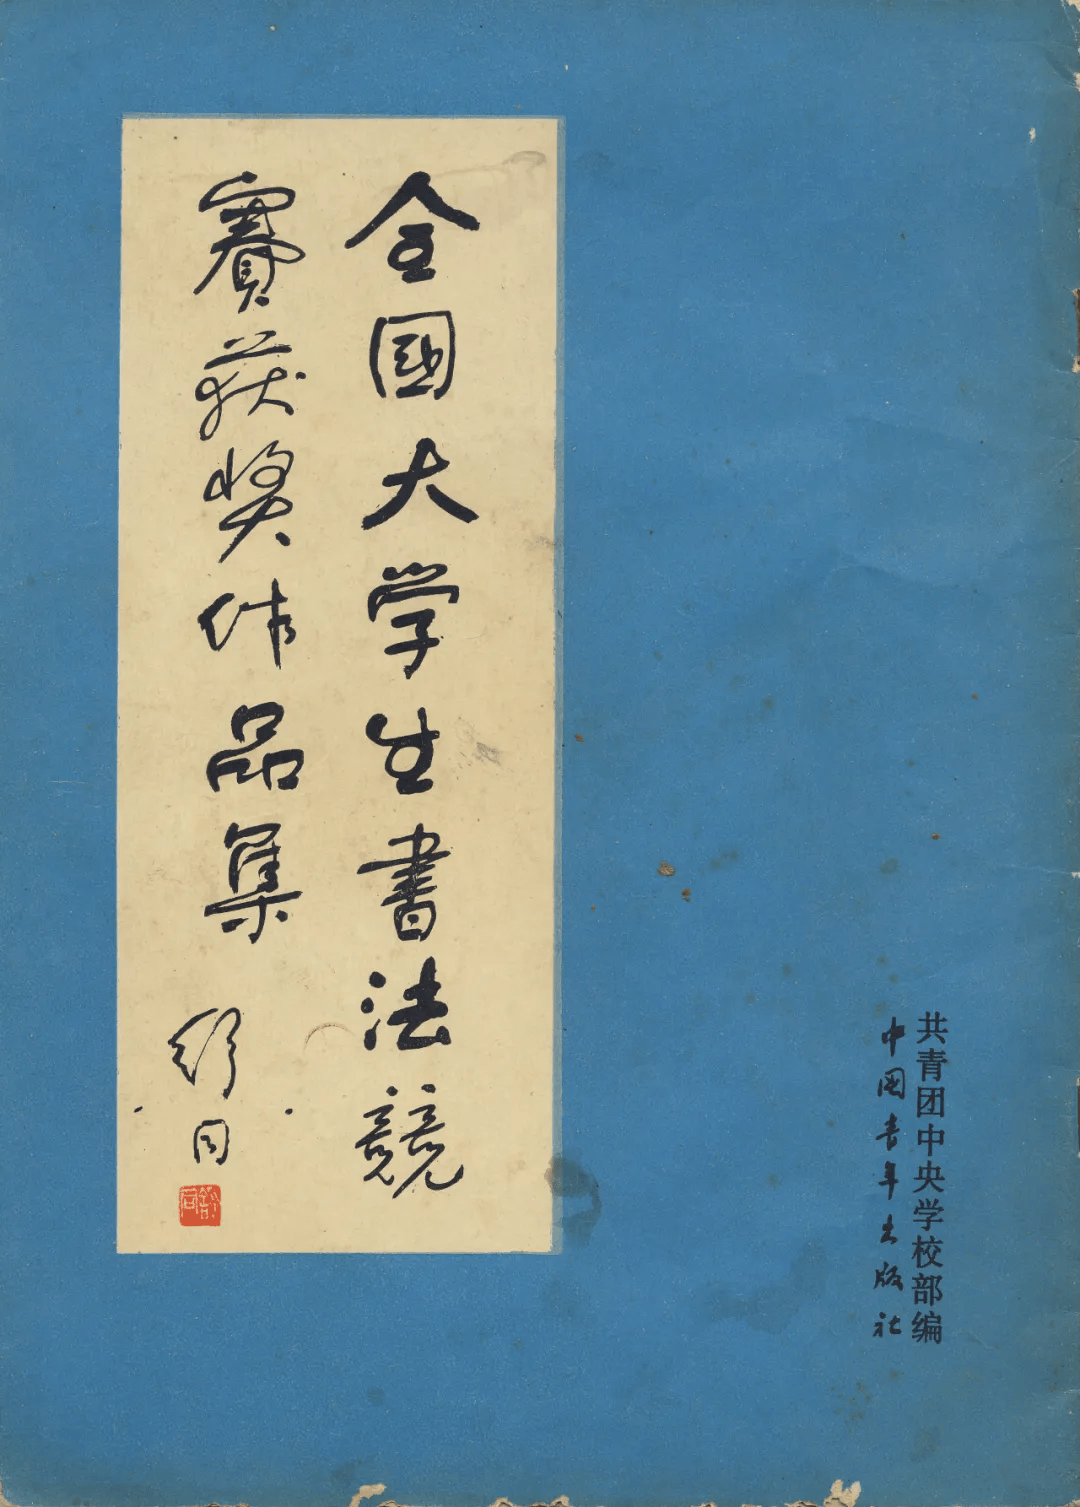 全國大学生書法競
賽获奖作品集
舒同
舒同
共青团中央学校部编
中国青年出版社